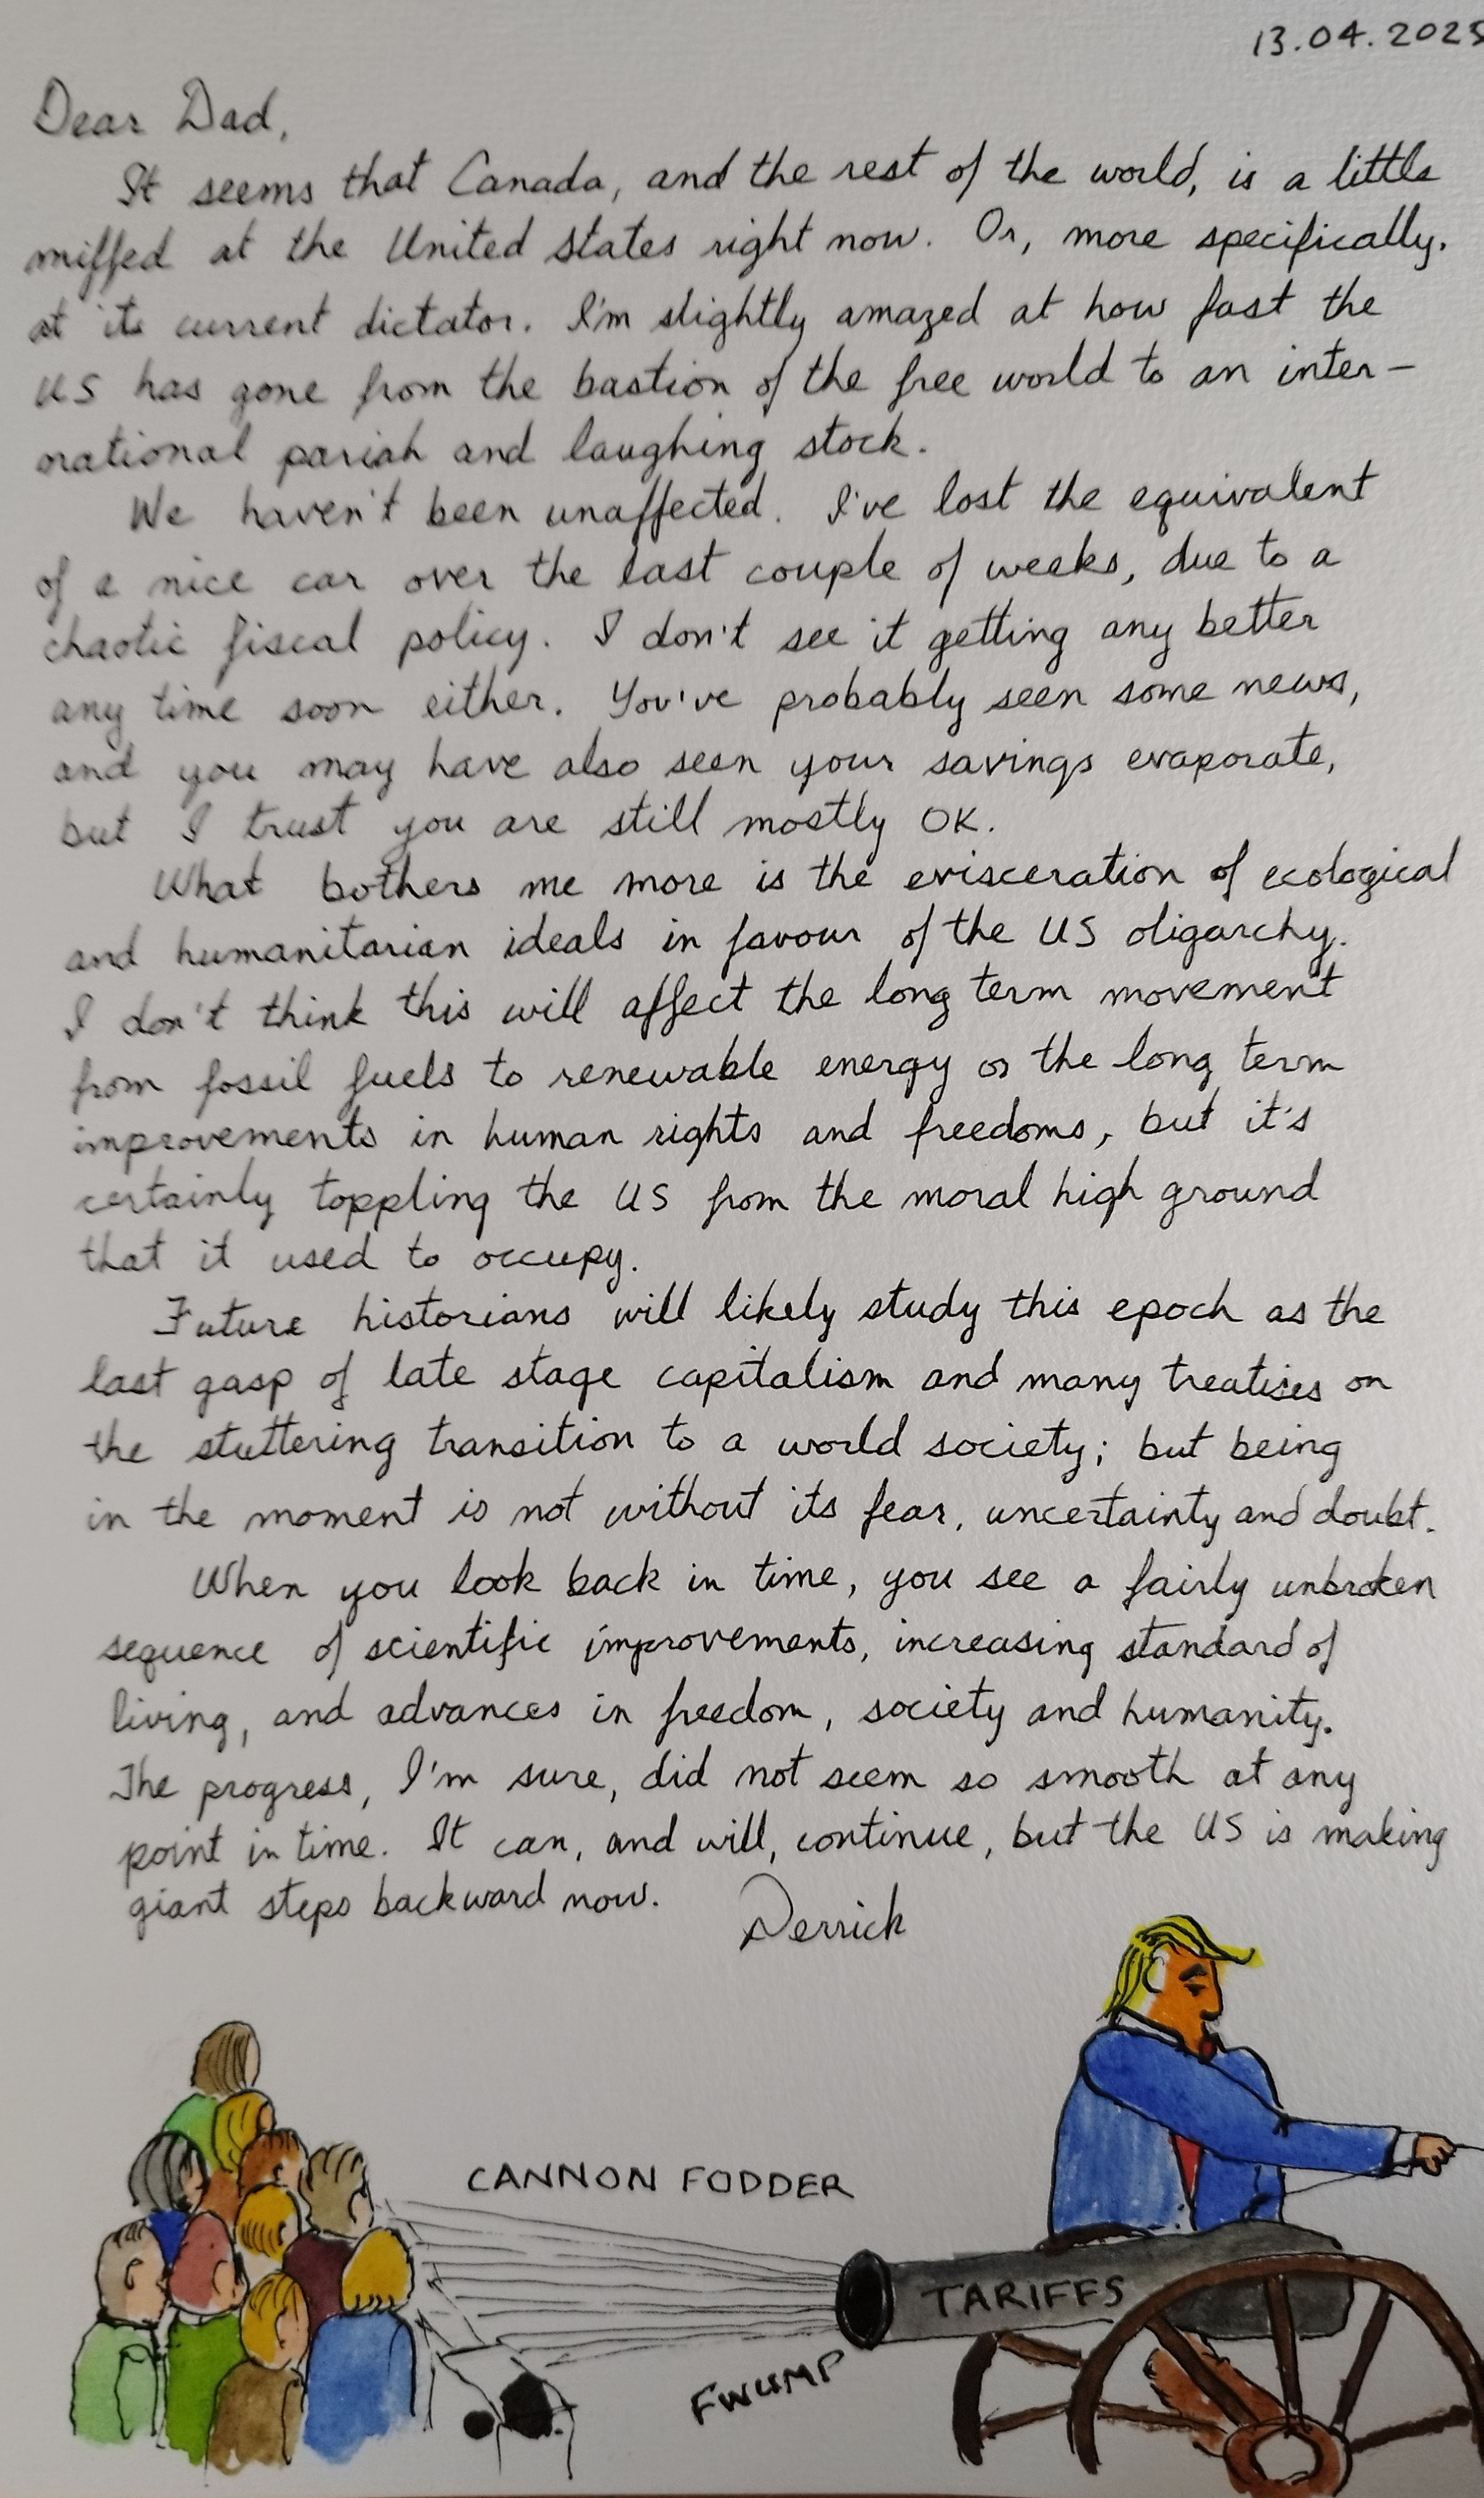 13.04.2025
Dear Dad,
It seems that Canada, and the rest of the world, is a little
miffed at the United States right now. Or, more specifically,
at its current dictator. I'm slightly amazed at how fast the
US has gone from the bastion of the free world to an inter-
national pariah and laughing stock.
We haven't been unaffected. I've lost the equivalent
of a nice car over the last couple of weeks, due to a
chaotic fiscal policy. I don't see it getting any better
any time soon either. You've probably seen some news,
and you may have also seen your savings evaporate,
but I trust you are still mostly OK.
What bothers me more is the evisceration of ecological
and humanitarian ideals in favour of the US oligarchy.
I don't think this will affect the long term movement
from fossil fuels to renewable energy or the long term
improvements in human rights and freedoms, but it's
certainly toppling the US from the moral high ground
that it used to occupy.
Future historians will likely study this epoch as the
last gasp of late stage capitalism and many treatises on
the stuttering transition to a world society; but being
in the moment is not without its fear, uncertainty and doubt.
When you look back in time, you see a fairly unbroken
sequence of scientific improvements, increasing standard of
living, and advances in freedom, society and humanity.
The progress, I'm sure, did not seem so smooth at any
point in time. It can, and will, continue, but the US is making
giant steps backward now.
Derrick
CANNON FODDER
TARIFFS
FWUMP